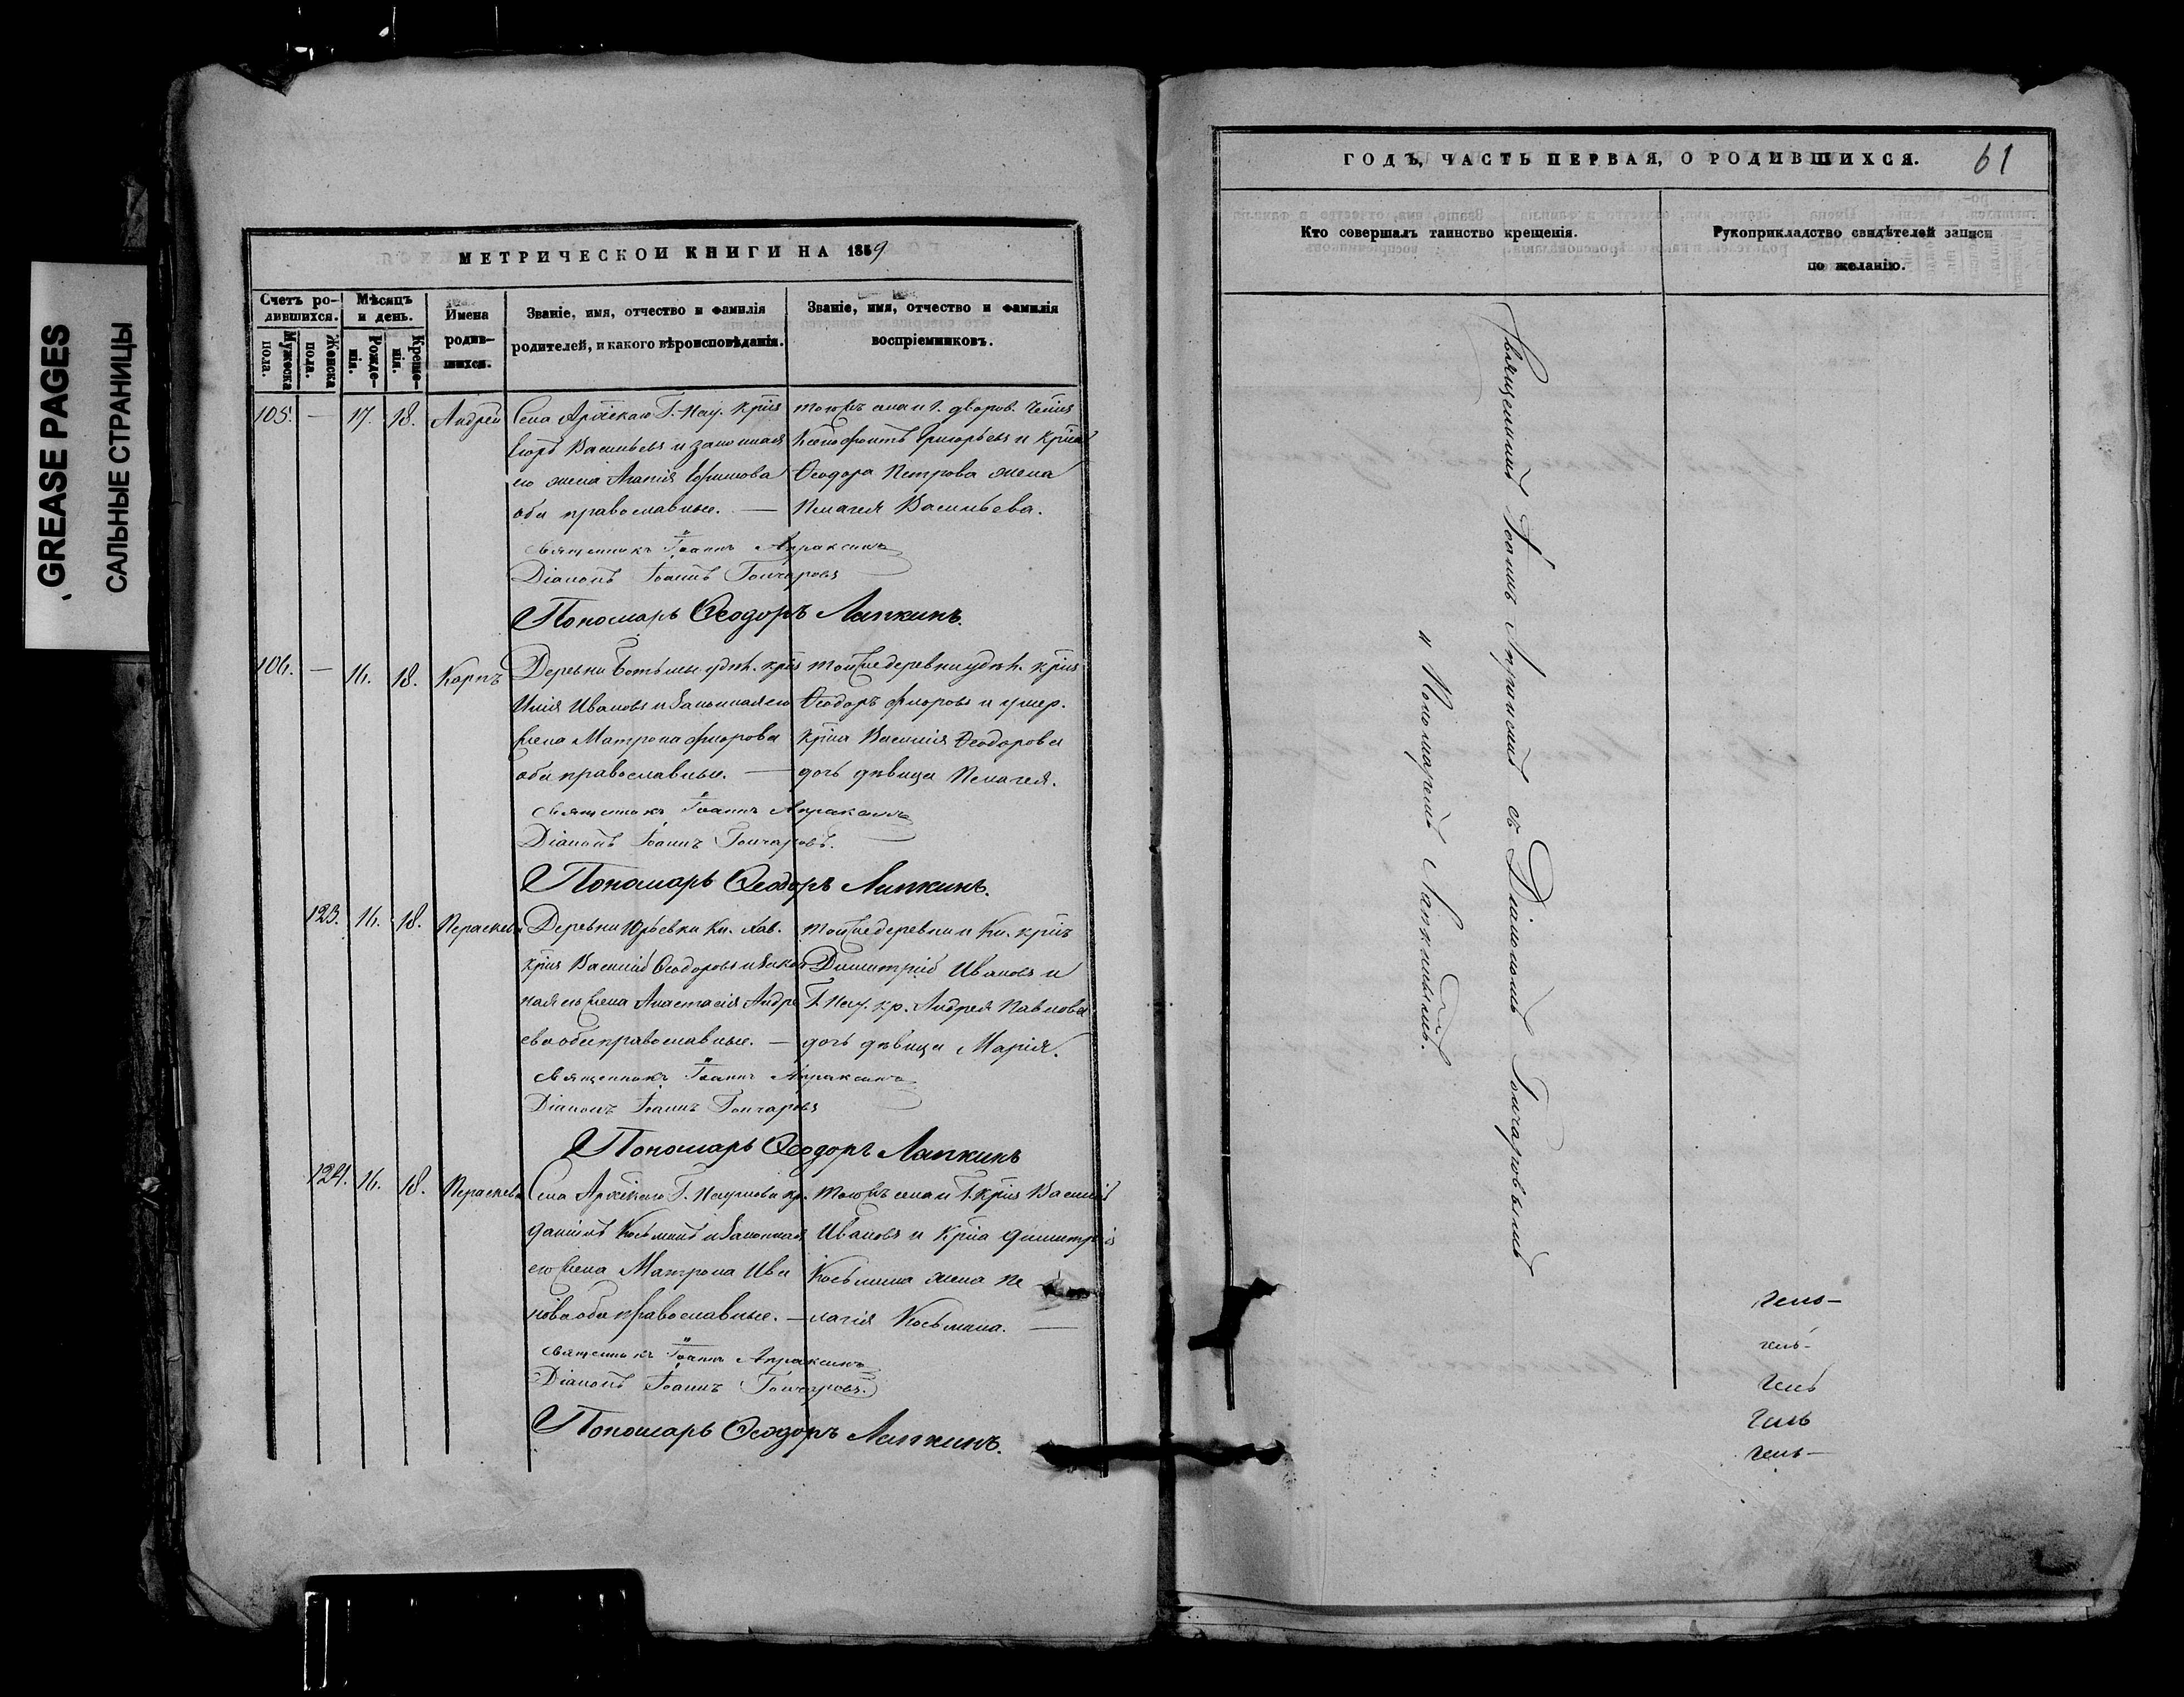 GREASE PAGES
САЛЬНЫЕ СТРАНИЦЫ
МЕТРИЧЕСКОЙ КНИГИ НА 1859
Счетъ ро-
дившихся.
Мужеска
пола.
Женска
пола.
Мѣсяцъ
и день.
Рожде-
нія.
Креще-
нія.
Имена
родив-
шихся.
Званіе, имя, отчество и фамилія
родителей, и какого вѣроисповѣданія.
Званіе, имя, отчество и фамилія
воспріемниковъ.
105. — 17. 18. Андрей
Села Г. Нау. крнъ
Егоръ Васильевъ и законная
его жена Агапія Ефимова
оба православные. —
тогожъ села и г. дворов. челкъ
Ксенофонтъ Григорьевъ и крна
Ѳеодора Петрова жена
Пелагея Васильева.
Священникъ Іоаннъ Апраксинъ
Діаконъ Іоаннъ Гончаровъ
Пономарь Ѳеодоръ Лапкинъ.
106. — 16. 18. Карпъ
Деревни удѣл. крнъ
Ивановъ и законная его
жена Матрона Флорова
оба православные. —
тойже деревни удѣл. крнъ
Ѳеодоръ Флоровъ и умер.
крна Василія Ѳеодорова
дочь дѣвица Пелагея.
Священникъ Іоаннъ Апраксинъ
Діаконъ Іоаннъ Гончаровъ.
Пономарь Ѳеодоръ Лапкинъ.
123. 16. 18. Параскева
Деревни Юрьевки Кн.
крнъ Василій Ѳеодоровъ и закон
ная его жена Анастасія Андре
ева оба православные. —
тойже деревни и Кн. крнъ
Димитрій Ивановъ и
Г. Нау. кр. Андрея Павлова
дочь дѣвица Марія.
Священникъ Іоаннъ Апраксинъ
Діаконъ Іоаннъ Гончаровъ
Пономарь Ѳеодоръ Лапкинъ
124. 16. 18. Параскева
Села Г. Наумова кр.
Даніилъ Косьминъ и законная
его жена Матрона Ива
нова оба православные. —
тогожъ села и Г. крнъ Василій
Ивановъ и крна Димитрія
Косьмина жена Пе
лагія Косьмина. —
Священникъ Іоаннъ Апраксинъ
Діаконъ Іоаннъ Гончаровъ.
Пономарь Ѳеодоръ Лапкинъ.
ГОДЪ, ЧАСТЬ ПЕРВАЯ, О РОДИВШИХСЯ.
61
Кто совершалъ таинство крещенія.
Рукоприкладство свидѣтелей записи
по желанію.
Священникъ Іоаннъ Апраксинъ съ Діакономъ Гончаровымъ
и Пономаремъ Лапкинымъ.